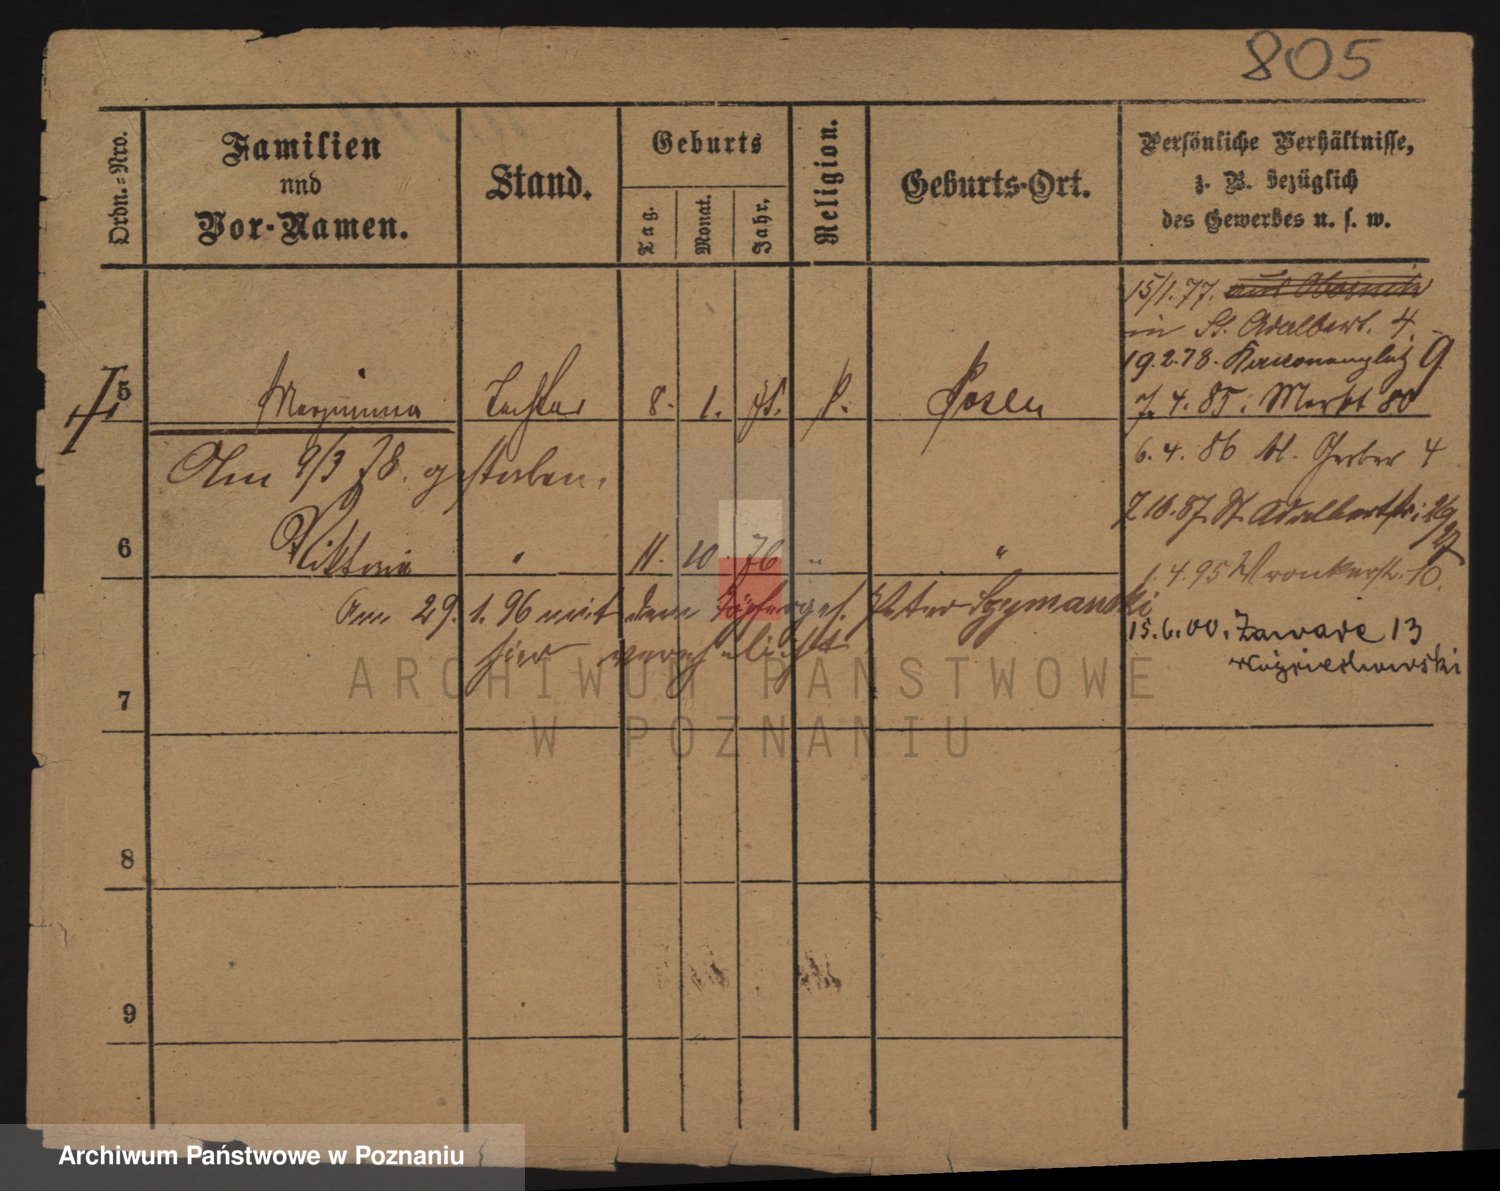 805
Ordn.=Nro.
Familien
und
Vor-Namen.
Stand.
Geburts
Tag.
Monat.
Jahr.
Religion.
Geburts-Ort.
Persönliche Verhältnisse,
z. B. bezüglich
des Gewerbes u. s. w.
15/1.77.
in St. Adalbert. 4.
19.2.78. Kanonenplatz 9
7.4.85. Markt 80
5 Tochter 8. 1. 75. k. Posen
Am 9/3 78. gestorben.
6.4.86 kl. Gerber 4
7.10.87. St. Adalbertstr. 26/27
6 Viktoria " 11. 10. 76 " "
1.4.95 Wronkerstr. 10.
Am 29.1.96 mit dem Töpferges. Peter Szymanski
hier verehelicht
15.6.00. Zawade 13
7
8
9
ARCHIWUM PAŃSTWOWE
W POZNANIU
Archiwum Państwowe w Poznaniu